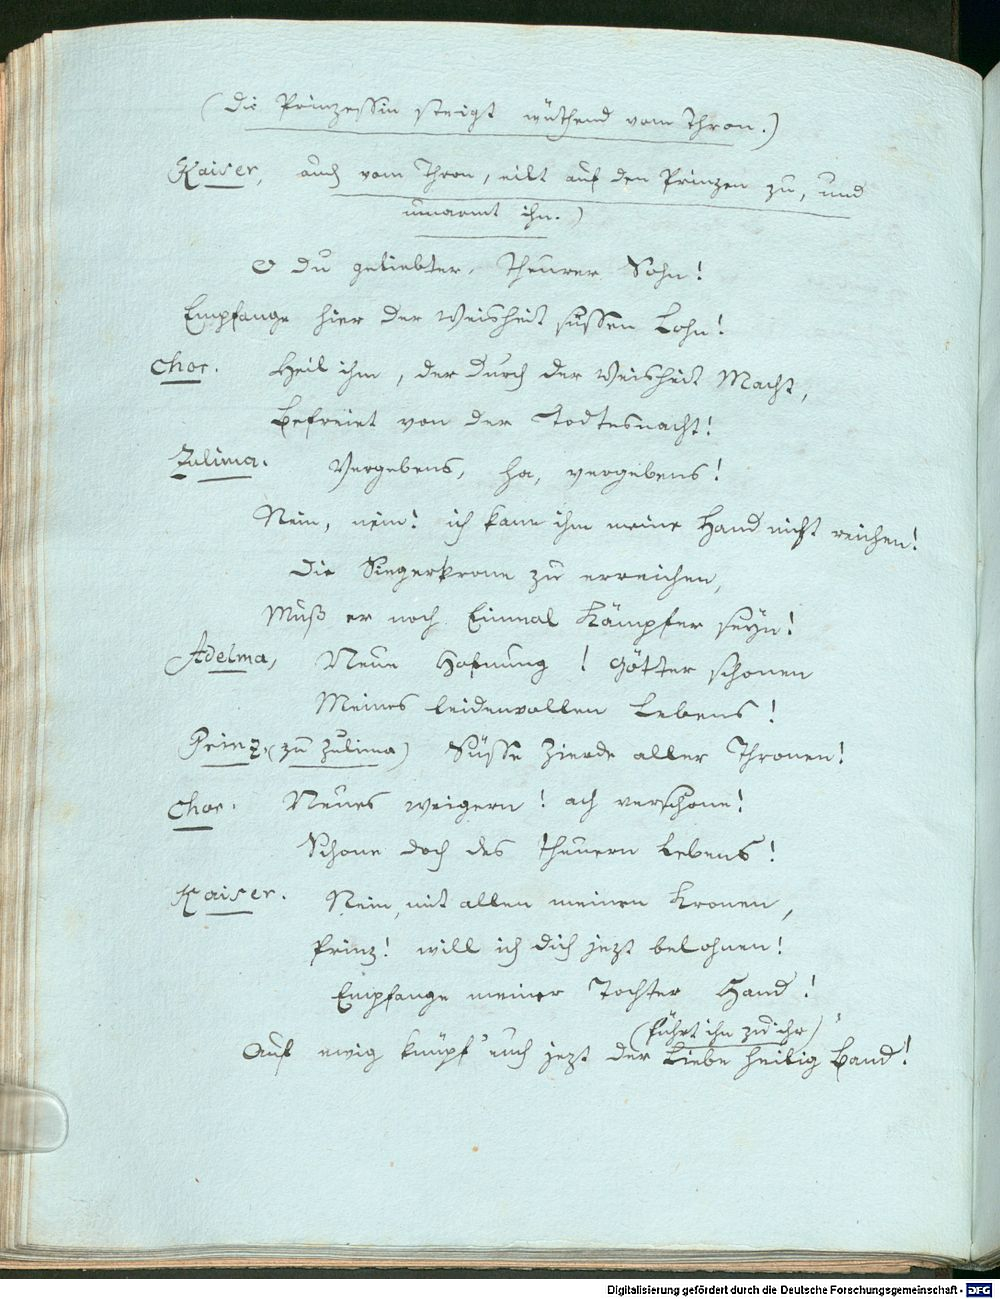 (die Prinzessin steigt wüthend vom Thron.)
Kaiser, auch vom Thron, eilt auf den Prinzen zu, und
umarmt ihn.)
O du geliebter, theurer Sohn!
Empfange hier der Weisheit süssen Lohn!
Chor. Heil ihm, der durch der Weisheit Macht,
Befreiet von der Todtesnacht!
Zulima. Vergebens, ha, vergebens!
Nein, nein! ich kann ihm meine Hand nicht reichen!
Die Siegerkrone zu erreichen,
Muß er noch Einmal Kämpfer seyn!
Adelma, Neue Hofnung! Götter schonen
Meines leidenvollen Lebens!
Prinz. (zu Zulima) Süsse Zierde aller Thronen!
Chor. Neues weigern! ach verschone!
Schone doch des theuern Lebens!
Kaiser. Nein, mit allen meinen Kronen,
Prinz! will ich dich jezt belohnen!
Empfange meiner Tochter Hand!
(führt ihn zu ihr)
Auf ewig knüpf' euch jezt der Liebe heilig Band!
Digitalisierung gefördert durch die Deutsche Forschungsgemeinschaft - DFG